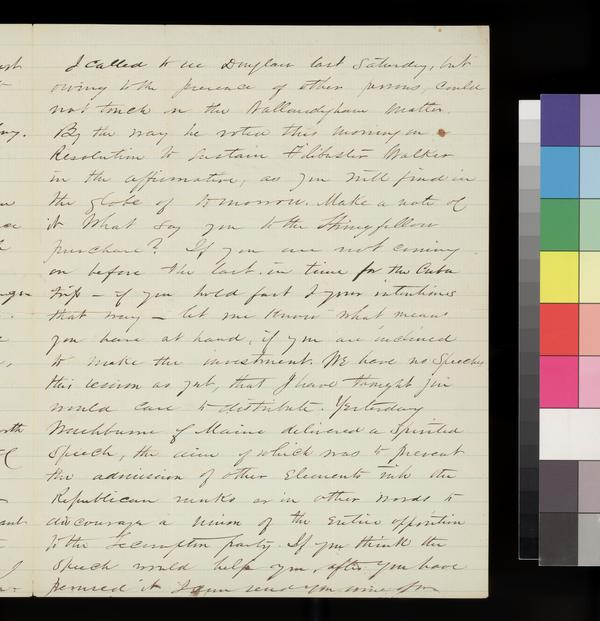 I called to see Douglass last Saturday, but
owing to the presence of other persons, could
not touch on the Vallandigham matter.
By the way he voted this morning on a
Resolution to sustain Filibuster Walker
in the affirmative, as you will find in
the globe of tomorrow. Make a note of
it What say you to the Stringfellow
purchase? If you are not coming
on before the last in time for the Cuba
trip – if you hold fast to your intentions
that way – let me know what means
you have at hand, if you are inclined
to make the investment. We have no Speeches
this session as yet, that I have thought you
would care to distribute. Yesterday
Washburne of Maine delivered a Spirited
Speech, the aim of which was to prevent
the admission of other Elements into the
Republican ranks or in other words to
discourage a union of the Entire opposition
to the Lecompton party. If you think the
Speech would help you, after you have
perused it I can send you some for